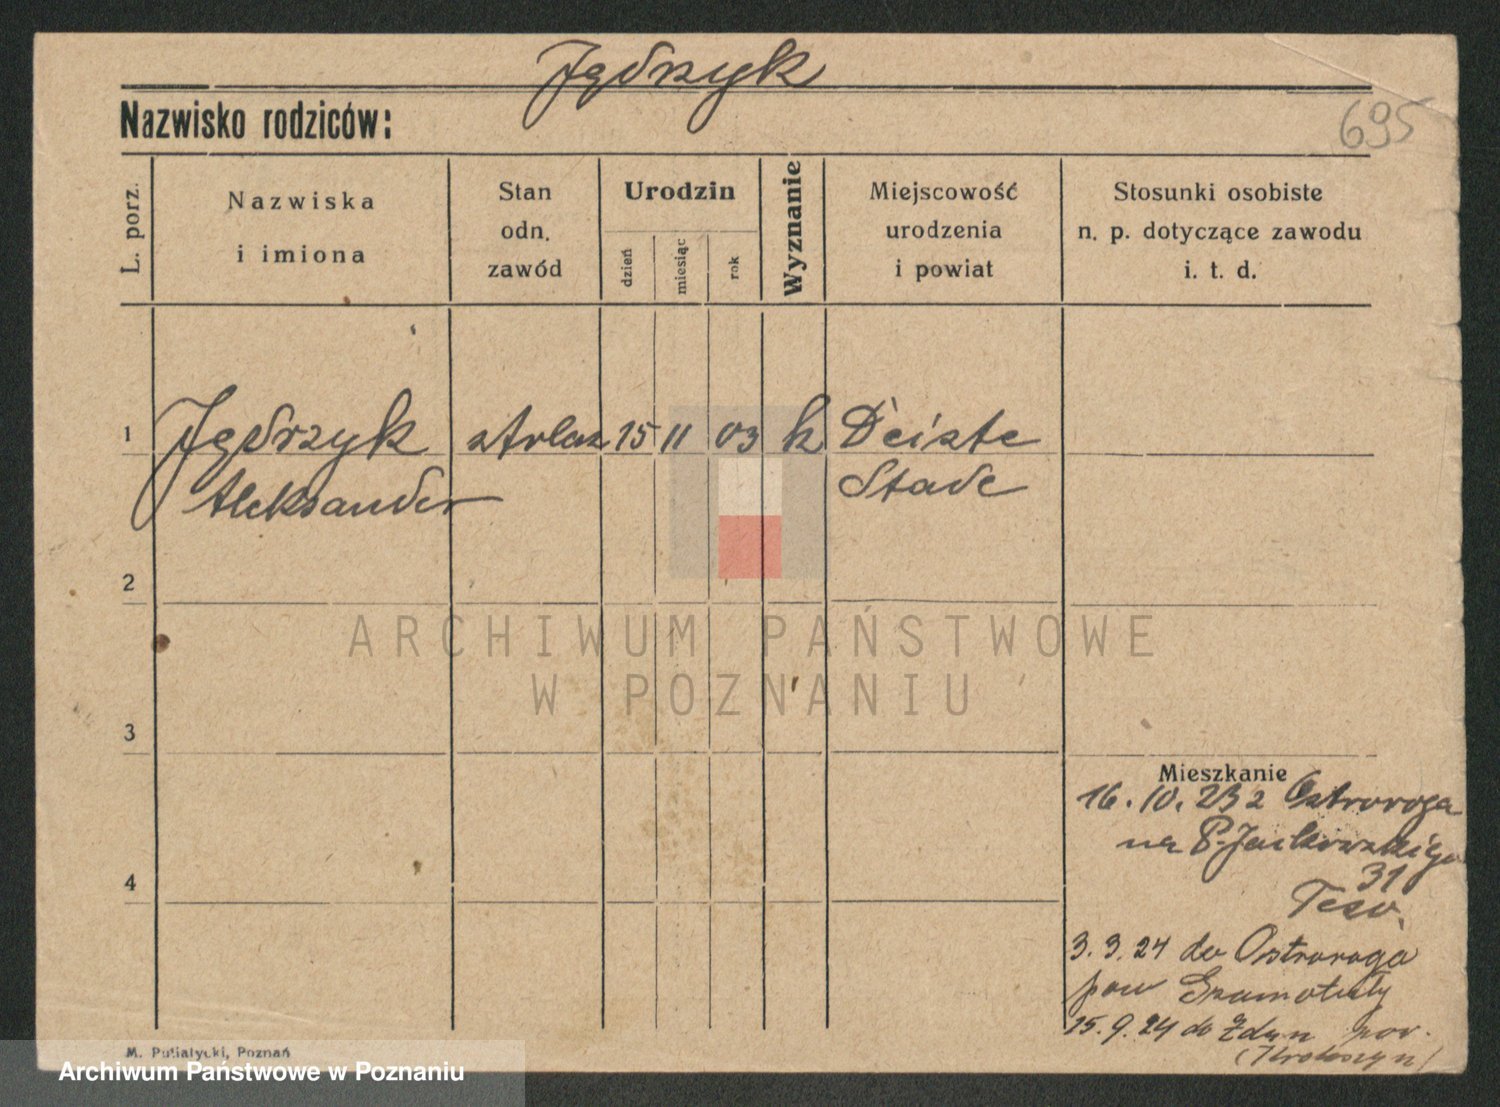 Jędrzyk
695
Nazwisko rodziców:
L. porz.
Nazwiska
i imiona
Stan
odn.
zawód
Urodzin
dzień
miesiąc
rok
Wyznanie
Miejscowość
urodzenia
i powiat
Stosunki osobiste
n. p. dotyczące zawodu
i. t. d.
1 Jędrzyk stolarz 15 11 03 k Deiste
Aleksander Stade
2
ARCHIWUM PAŃSTWOWE
W POZNANIU
3
Mieszkanie
16. 10. 23 z Ostroroga
na P. Jackowskiego
31
4
3. 3. 24 do Ostroroga
pow Szamotuły
15. 9. 24 do Zdun pow.
(Krotoszyn)
M. Putiatycki, Poznań
Archiwum Państwowe w Poznaniu